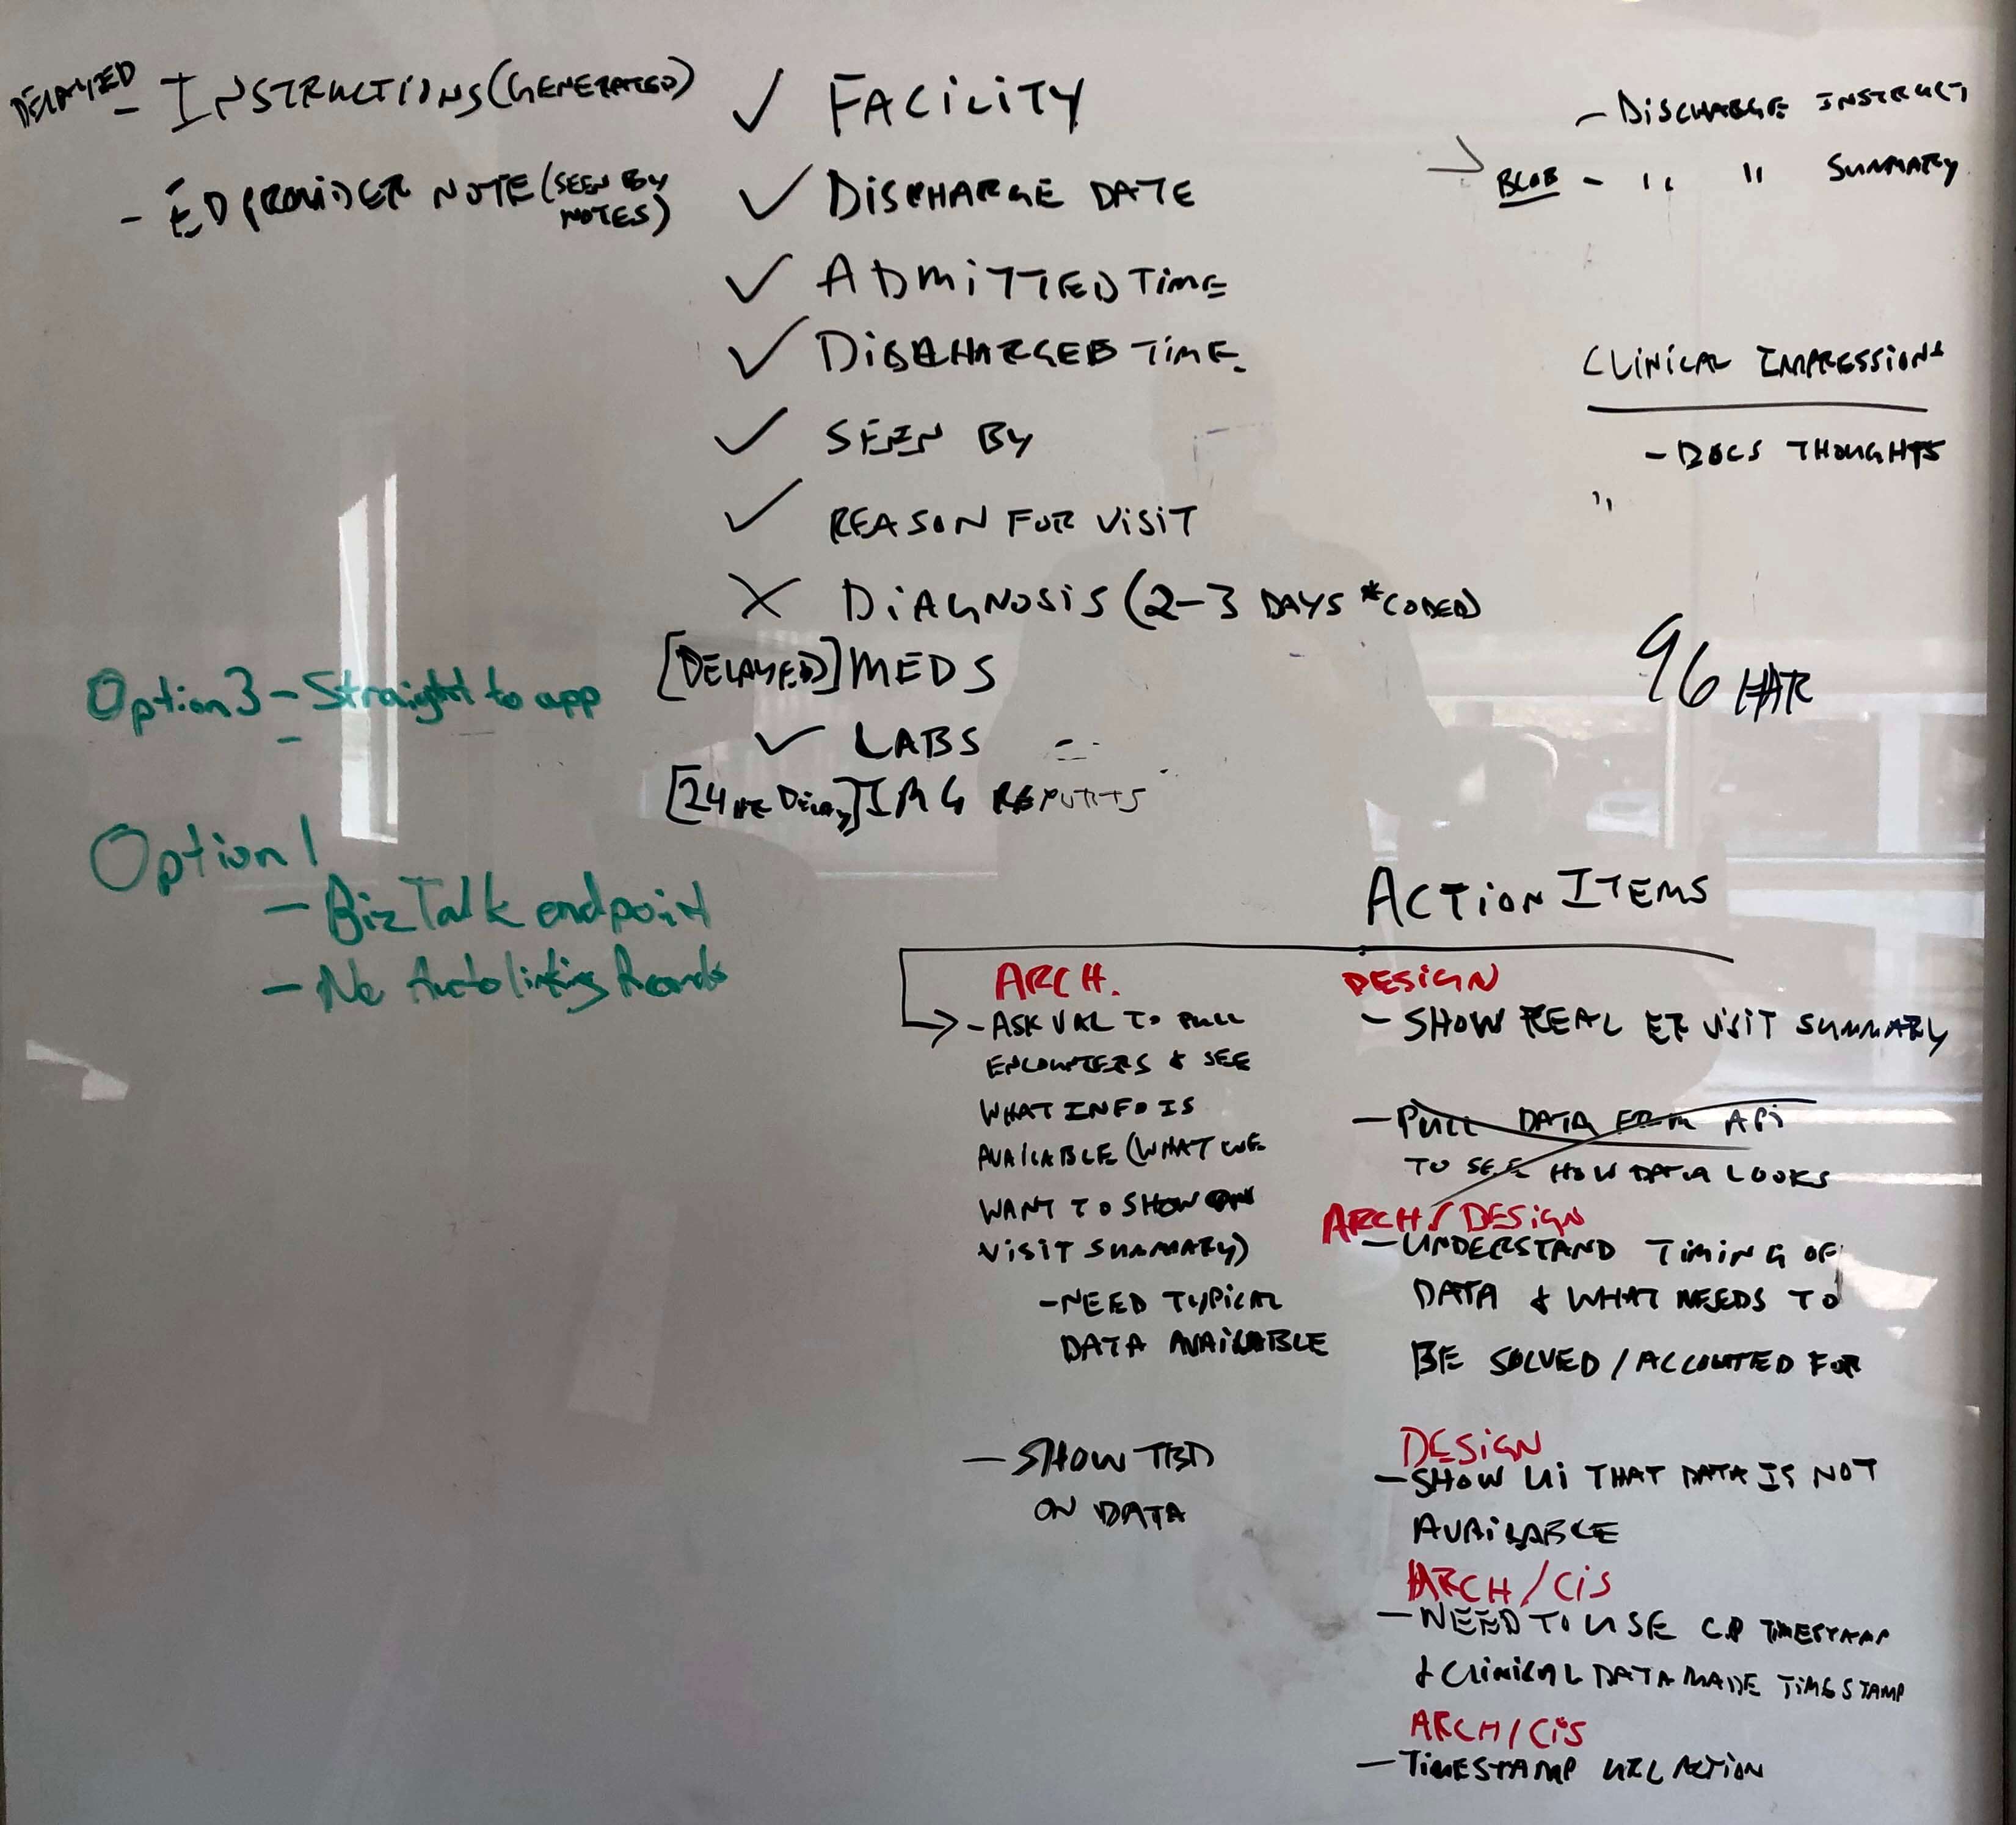 DELAYED
- INSTRUCTIONS (GENERATED)
- ED PROVIDER NOTE (SEEN BY
NOTES)
✓ FACILITY
✓ DISCHARGE DATE
✓ ADMITTED TIME
✓ DISCHARGED TIME.
✓ SEEN BY
✓ REASON FOR VISIT
X DIAGNOSIS (2-3 DAYS *CODED)
[DELAYED] MEDS
✓ LABS
[24 HR DELAY] IMG REPORTS
- DISCHARGE INSTRUCT
→ BLOB - " " SUMMARY
CLINICAL IMPRESSIONS
- DOCS THOUGHTS
"
96 HR
Option 3 - Straight to app
-
Option 1
- BizTalk endpoint
- No Auto linking Records
ACTION ITEMS
ARCH.
- ASK VAL TO PULL
ENCOUNTERS & SEE
WHAT INFO IS
AVAILABLE (WHAT WE
WANT TO SHOW ON
VISIT SUMMARY)
- NEED TYPICAL
DATA AVAILABLE
- SHOW TBD
ON DATA
DESIGN
- SHOW REAL ER VISIT SUMMARY
- PULL DATA FROM API
TO SEE HOW DATA LOOKS
ARCH/DESIGN
- UNDERSTAND TIMING OF
DATA & WHAT NEEDS TO
BE SOLVED/ACCOUNTED FOR
DESIGN
- SHOW UI THAT DATA IS NOT
AVAILABLE
ARCH/CIS
- NEED TO USE TIMESTAMP
& CLINICAL DATA MADE TIMESTAMP
ARCH/CIS
- TIMESTAMP URL ACTION